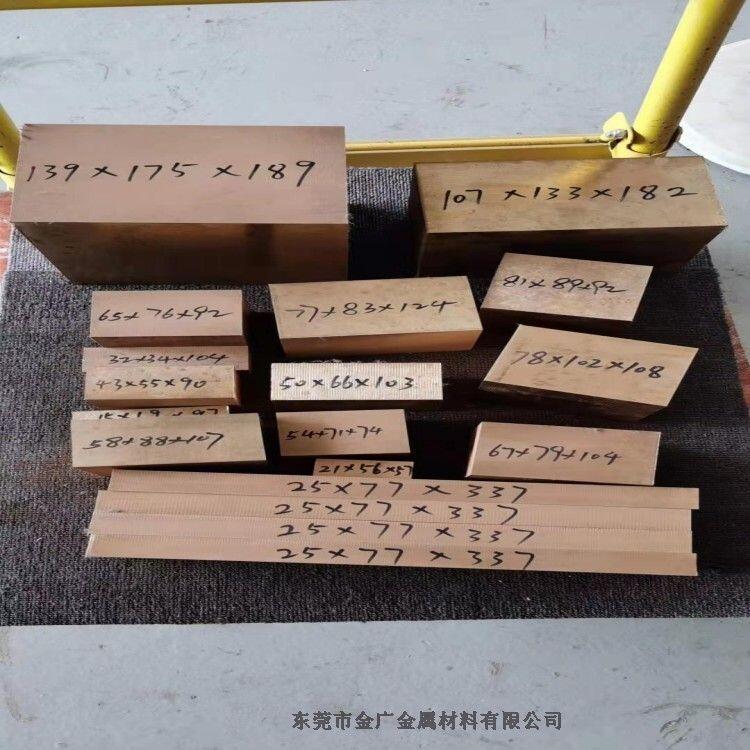 139×175×189
107×133×182
81×89×92
65×76×92
77×83×124
32×34×104
78×102×108
43×55×90
50×66×103
58×88×107
54×71×74
67×79×104
21×56×57
25×77×337
25×77×337
25×77×337
25×77×337
东莞市金广金属材料有限公司